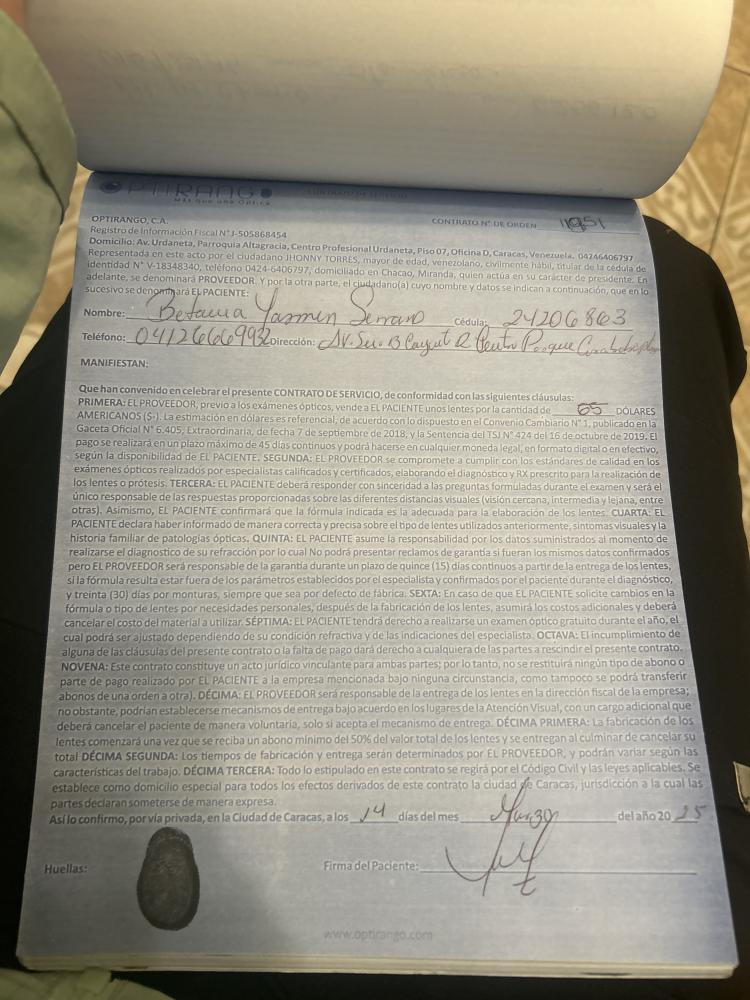 OPTIRANGO
Más que una Óptica
CONTRATO DE SERVICIO
OPTIRANGO, C.A.
CONTRATO N° DE ORDEN
Registro de Información Fiscal N° J-505868454
Domicilio: Av. Urdaneta, Parroquia Altagracia, Centro Profesional Urdaneta, Piso 07, Oficina D, Caracas, Venezuela. 04246406797
Representada en este acto por el ciudadano JHONNY TORRES, mayor de edad, venezolano, civilmente hábil, titular de la cédula de
identidad N° V-18348340, teléfono 0424-6406797, domiciliado en Chacao, Miranda, quien actúa en su carácter de presidente. En
adelante, se denominará PROVEEDOR. Y por la otra parte, el ciudadano(a) cuyo nombre y datos se indican a continuación, que en lo
sucesivo se denominará EL PACIENTE:
Nombre: Betania Yasmin Serrano Cédula: 24206863
Teléfono: 04126669932 Dirección: Av. 13 Centro Parque
MANIFIESTAN:
Que han convenido en celebrar el presente CONTRATO DE SERVICIO, de conformidad con las siguientes cláusulas:
PRIMERA: EL PROVEEDOR, previo a los exámenes ópticos, vende a EL PACIENTE unos lentes por la cantidad de 65 DÓLARES
AMERICANOS ($-). La estimación en dólares es referencial, de acuerdo con lo dispuesto en el Convenio Cambiario N° 1, publicado en la
Gaceta Oficial N° 6.405, Extraordinaria, de fecha 7 de septiembre de 2018; y la Sentencia del TSJ N° 424 del 16 de octubre de 2019. El
pago se realizará en un plazo máximo de 45 días continuos y podrá hacerse en cualquier moneda legal, en formato digital o en efectivo,
según la disponibilidad de EL PACIENTE. SEGUNDA: EL PROVEEDOR se compromete a cumplir con los estándares de calidad en los
exámenes ópticos realizados por especialistas calificados y certificados, elaborando el diagnóstico y RX prescrito para la realización de
los lentes o prótesis. TERCERA: EL PACIENTE deberá responder con sinceridad a las preguntas formuladas durante el examen y será el
único responsable de las respuestas proporcionadas sobre las diferentes distancias visuales (visión cercana, intermedia y lejana, entre
otras). Asimismo, EL PACIENTE confirmará que la fórmula indicada es la adecuada para la elaboración de los lentes. CUARTA: EL
PACIENTE declara haber informado de manera correcta y precisa sobre el tipo de lentes utilizados anteriormente, síntomas visuales y la
historia familiar de patologías ópticas. QUINTA: EL PACIENTE asume la responsabilidad por los datos suministrados al momento de
realizarse el diagnostico de su refracción por lo cual No podrá presentar reclamos de garantía si fueran los mismos datos confirmados
pero EL PROVEEDOR será responsable de la garantía durante un plazo de quince (15) días continuos a partir de la entrega de los lentes,
si la fórmula resulta estar fuera de los parámetros establecidos por el especialista y confirmados por el paciente durante el diagnóstico,
y treinta (30) días por monturas, siempre que sea por defecto de fábrica. SEXTA: En caso de que EL PACIENTE solicite cambios en la
fórmula o tipo de lentes por necesidades personales, después de la fabricación de los lentes, asumirá los costos adicionales y deberá
cancelar el costo del material a utilizar. SÉPTIMA: EL PACIENTE tendrá derecho a realizarse un examen óptico gratuito durante el año, el
cual podrá ser ajustado dependiendo de su condición refractiva y de las indicaciones del especialista. OCTAVA: El incumplimiento de
alguna de las cláusulas del presente contrato o la falta de pago dará derecho a cualquiera de las partes a rescindir el presente contrato.
NOVENA: Este contrato constituye un acto jurídico vinculante para ambas partes; por lo tanto, no se restituirá ningún tipo de abono o
parte de pago realizado por EL PACIENTE a la empresa mencionada bajo ninguna circunstancia, como tampoco se podrá transferir
abonos de una orden a otra). DÉCIMA: EL PROVEEDOR será responsable de la entrega de los lentes en la dirección fiscal de la empresa;
no obstante, podrían establecerse mecanismos de entrega bajo acuerdo en los lugares de la Atención Visual, con un cargo adicional que
deberá cancelar el paciente de manera voluntaria, solo si acepta el mecanismo de entrega. DÉCIMA PRIMERA: La fabricación de los
lentes comenzará una vez que se reciba un abono mínimo del 50% del valor total de los lentes y se entregan al culminar de cancelar su
total DÉCIMA SEGUNDA: Los tiempos de fabricación y entrega serán determinados por EL PROVEEDOR, y podrán variar según las
características del trabajo. DÉCIMA TERCERA: Todo lo estipulado en este contrato se regirá por el Código Civil y las leyes aplicables. Se
establece como domicilio especial para todos los efectos derivados de este contrato la ciudad de Caracas, jurisdicción a la cual las
partes declaran someterse de manera expresa.
Así lo confirmo, por vía privada, en la Ciudad de Caracas, a los 14 días del mes Marzo del año 2025
Huellas:
Firma del Paciente:
www.optirango.com